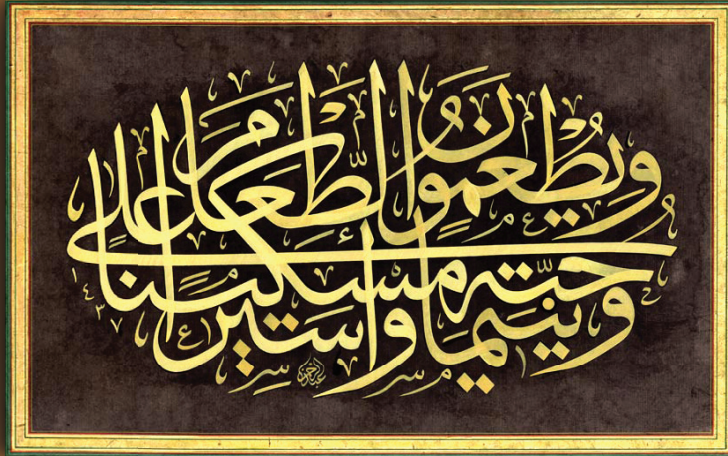 وَيُطْعِمُونَ الطَّعَامَ عَلَىٰ
حُبِّهِ مِسْكِينًا
وَيَتِيمًا وَأَسِيرًا
١٤٣٧